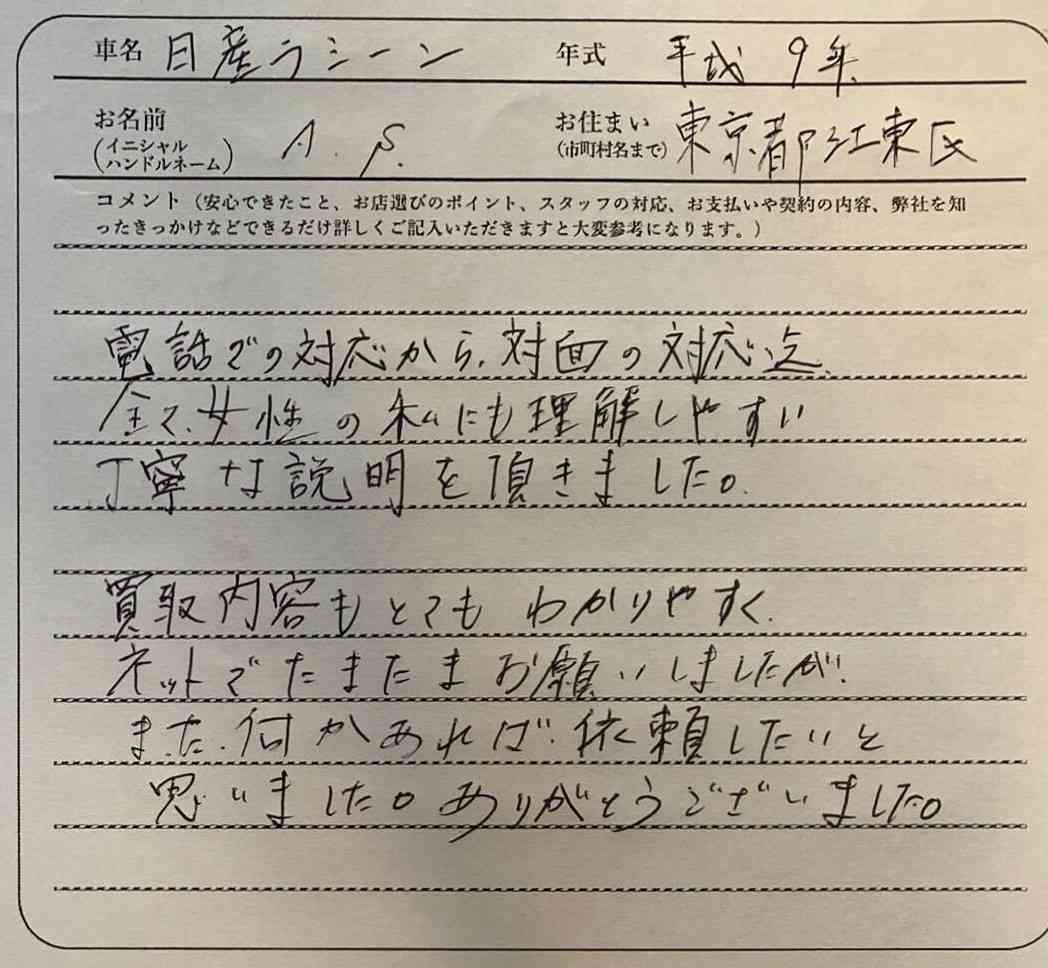 車名 日産ラシーン 年式 平成 9年
お名前
(イニシャル
ハンドルネーム) A. S.
お住まい
(市町村名まで) 東京都江東区
コメント（安心できたこと、お店選びのポイント、スタッフの対応、お支払いや契約の内容、弊社を知
ったきっかけなどできるだけ詳しくご記入いただきますと大変参考になります。）
電話での対応から、対面の対応迄、
全て、女性の私にも理解しやすい
丁寧な説明を頂きました。
買取内容もとても わかりやすく、
ネットでたまたまお願いしましたが、
また、何かあれば、依頼したいと
思いました。ありがとうございました。